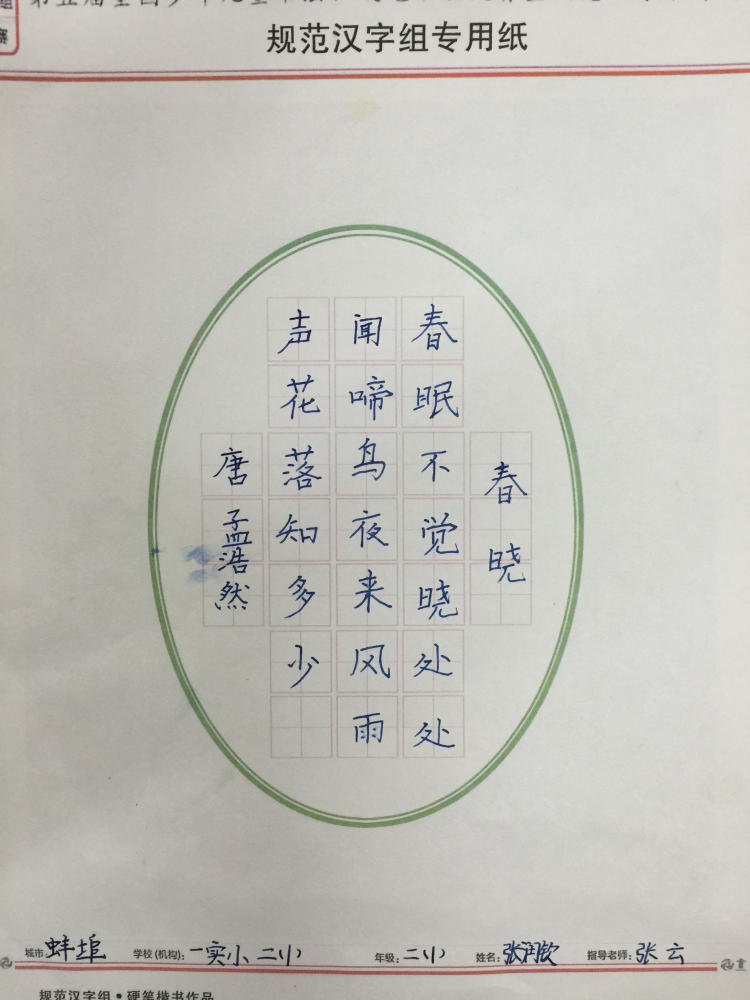 规范汉字组专用纸
春晓
春眠不觉晓处处
闻啼鸟夜来风雨
声花落知多少
唐孟浩然
城市：蚌埠 学校(机构)：一实小、二(1) 年级：二(1) 姓名：张润钦 指导老师：张云
规范汉字组·硬笔楷书作品